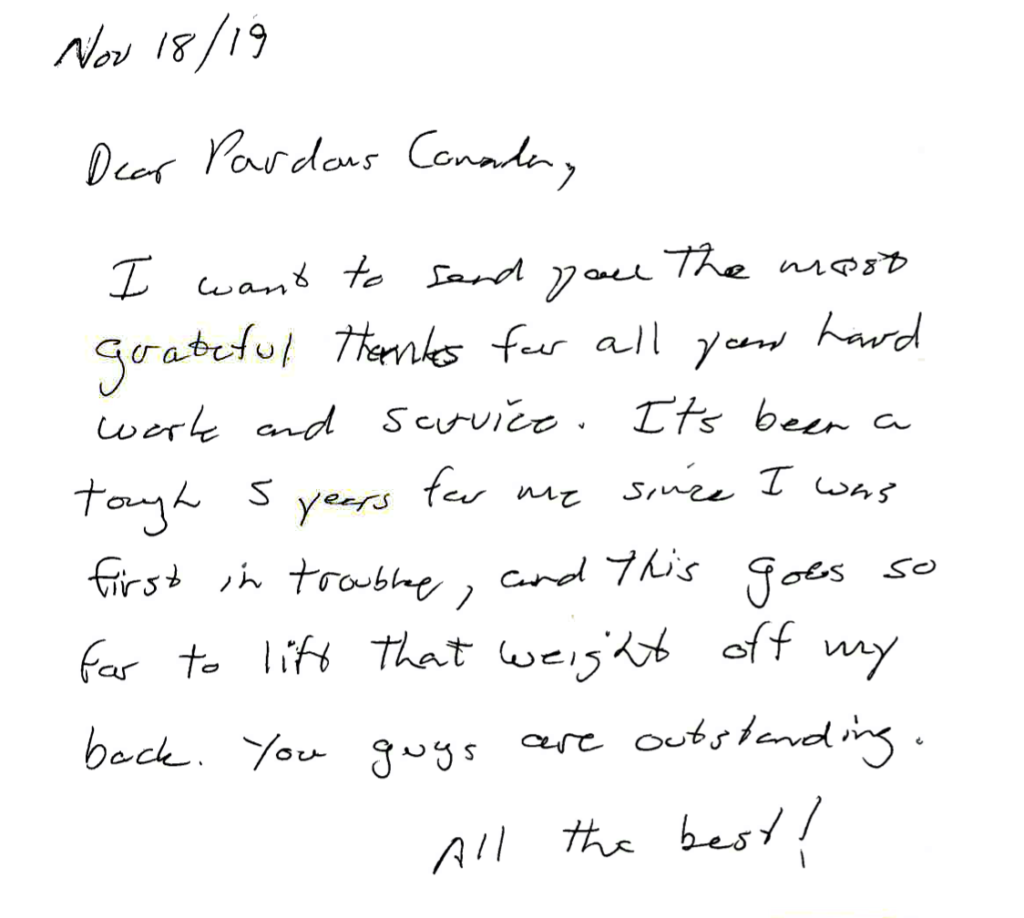 Nov 18/19
Dear Pardons Canada,
I want to send you the most
grateful thanks for all your hard
work and service. Its been a
tough 5 years for me since I was
first in trouble, and this goes so
far to lift that weight off my
back. You guys are outstanding.
All the best!